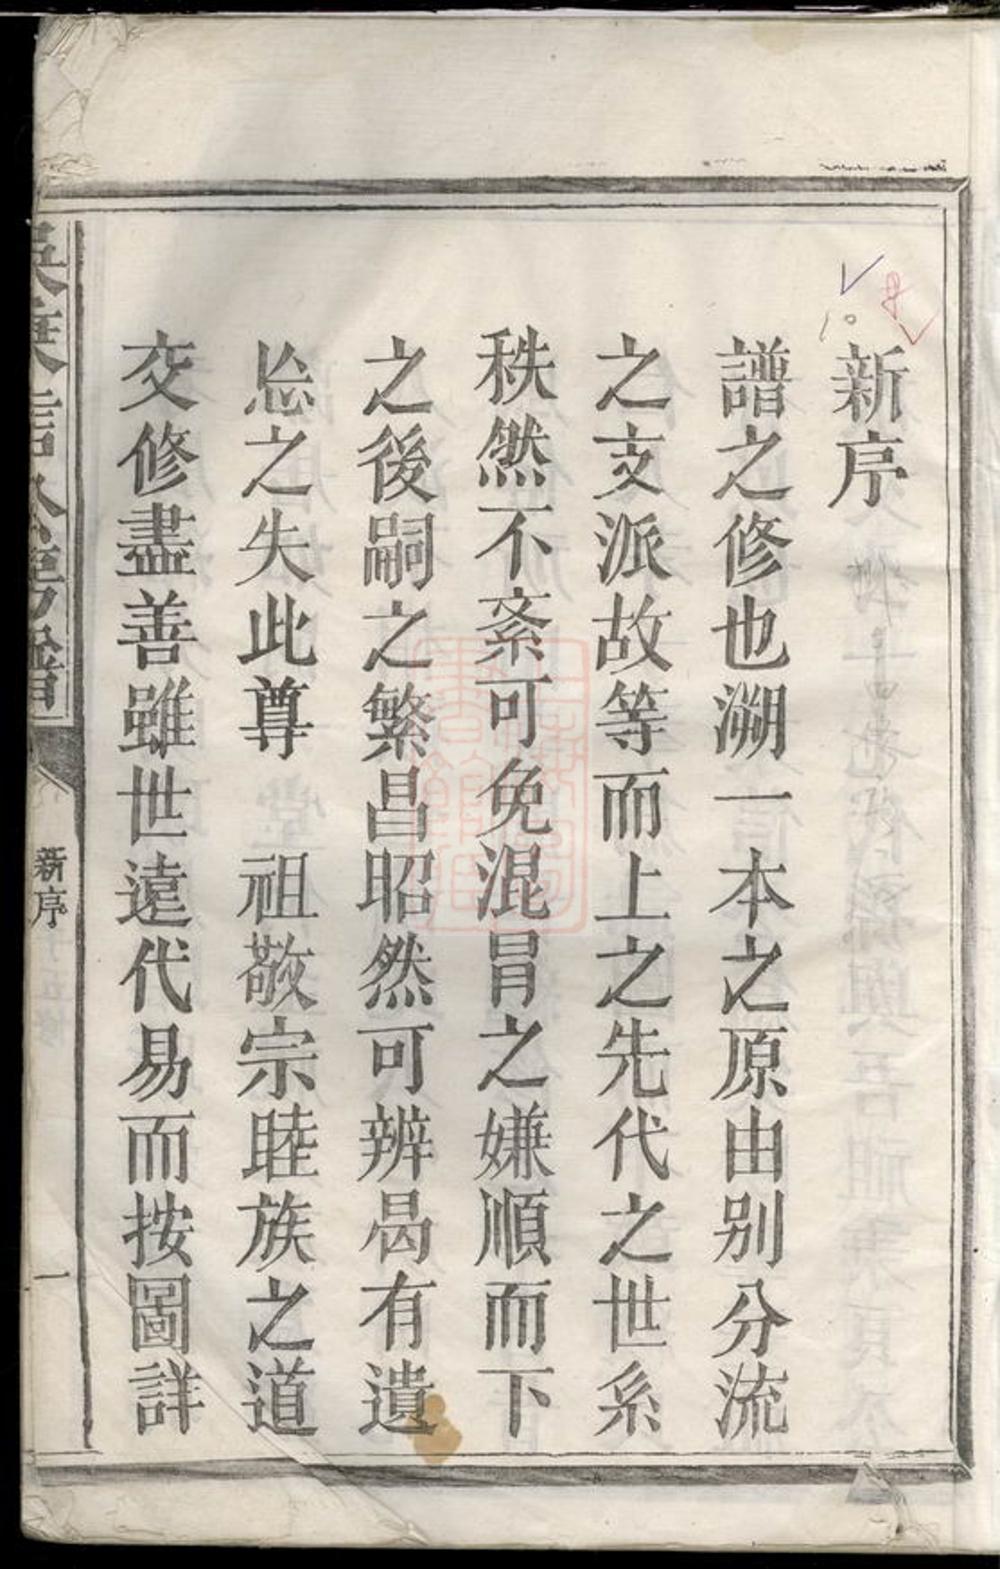 新序
譜之修也溯一本之原由别分流
之支派故等而上之先代之世系
秩然不紊可免混冐之嫌順而下
之後嗣之繁昌昭然可辨曷有遺
㤀之失此尊 祖敬宗睦族之道
交修盡善雖世遠代易而按圖詳
新序
一